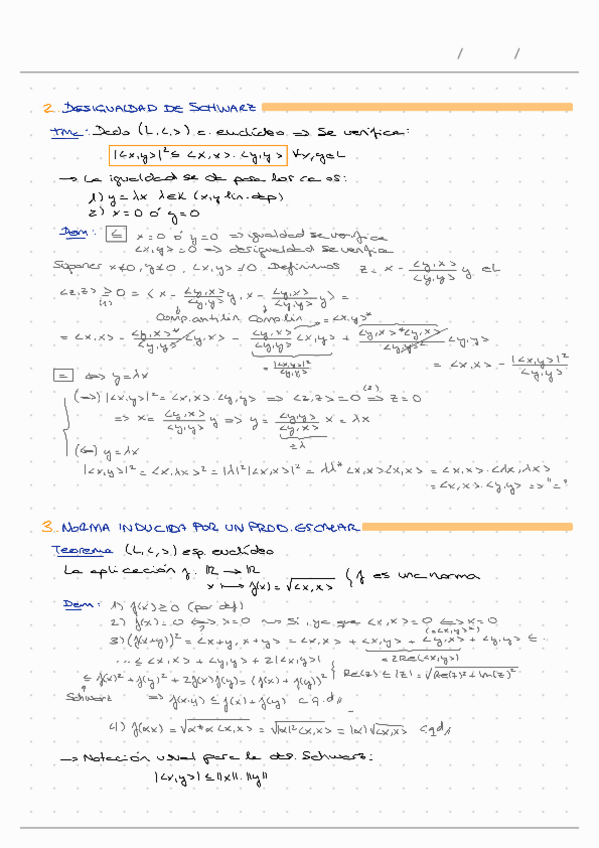 / /
2. DESIGUALDAD DE SCHWARZ
TMC: Dado (L,<,>) e. euclídeo => Se verifica:
|<x,y>|² ≤ <x,x>·<y,y> ∀x,y∈L
→ La igualdad se da para los casos:
1) y=λx λ∈K (x,y lin. dep)
2) x=0 ó y=0
Dem: ≤ x=0 ó y=0 => igualdad se verifica
<x,y>=0 => desigualdad se verifica
Suponer x≠0, y≠0, <x,y>≠0. Definimos z = x - <y,x>/<y,y> y ∈L
<z,z> ≥ 0 = <x - <y,x>/<y,y> y, x - <y,x>/<y,y> y> =
(1)
Comp. antilin Comp. lin = <x,y>*
= <x,x> - <y,x>*/<y,y> <y,x> - <y,x>/<y,y> <x,y> + <y,x>*<y,x>/<y,y>² <y,y>
= |<x,y>|²/<y,y> = <x,x> - |<x,y>|²/<y,y>
= <=> y=λx
(=>) |<x,y>|² = <x,x>·<y,y> => <z,z>=0 (2)=> z=0
=> x = <y,x>/<y,y> y => y = <y,y>/<y,x> x = λx
=λ
(<=) y=λx
|<x,y>|² = <x,λx>² = |λ|²|<x,x>|² = λλ* <x,x><x,x> = <x,x>·<λx,λx>
= <x,x>·<y,y> => "="
3. NORMA INDUCIDA POR UN PROD. ESCALAR
Teorema (L,<,>) esp. euclídeo
La aplicación f: ℝ → ℝ
x ↦ f(x) = √<x,x> { f es una norma
Dem: 1) f(x) ≥ 0 (por def)
2) f(x)=0 <=>? x=0 → Si, ya que <x,x>=0 <=> x=0
(<x,y>*)
3) (f(x+y))² = <x+y, x+y> = <x,x> + <x,y> + <y,x> + <y,y> ≤ ..
= 2Re(<x,y>)
... ≤ <x,x> + <y,y> + 2|<x,y>|
≤ f(x)² + f(y)² + 2f(x)f(y) = (f(x)+f(y))² } Re(z) ≤ |z| = √Re(z)²+Im(z)²
Schwarz => f(x+y) ≤ f(x)+f(y) c.q.d//
4) f(αx) = √α*α<x,x> = √|α|²<x,x> = |α|√<x,x> cqd//
→ Notación usual para la des. Schwarz:
|<x,y>| ≤ ||x||·||y||